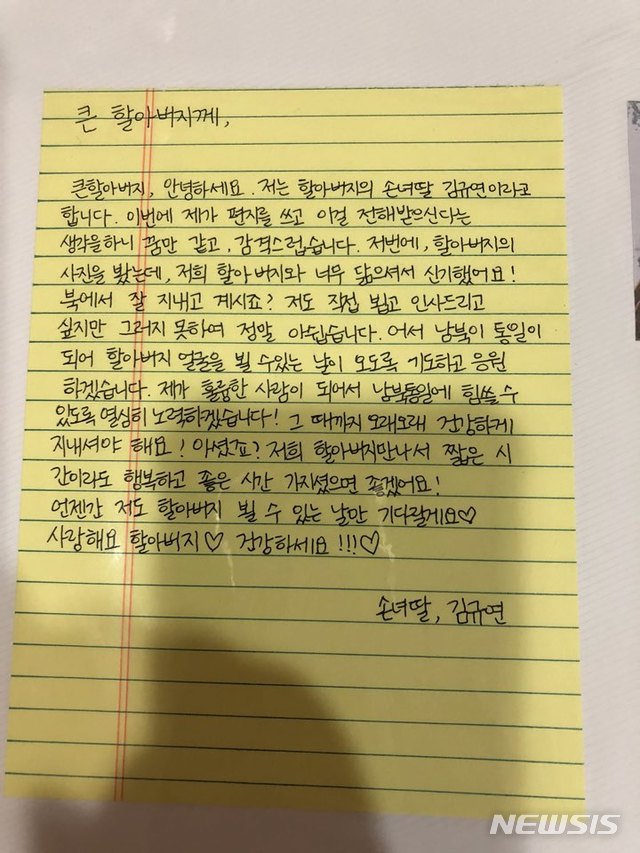 큰 할아버지께,
큰할아버지, 안녕하세요. 저는 할아버지의 손녀딸 김규연이라고
합니다. 이번에 제가 편지를 쓰고 이걸 전해받으신다는
생각을하니 꿈만 같고, 감격스럽습니다. 저번에, 할아버지의
사진을 봤는데, 저희 할아버지와 너무 닮으셔서 신기했어요!
북에서 잘 지내고 계시죠? 저도 직접 뵙고 인사드리고
싶지만 그러지 못하여 정말 아쉽습니다. 어서 남북이 통일이
되어 할아버지 얼굴을 뵐 수있는 날이 오도록 기도하고 응원
하겠습니다. 제가 훌륭한 사람이 되어서 남북통일에 힘쓸 수
있도록 열심히 노력하겠습니다! 그 때까지 오래오래 건강하게
지내셔야 해요! 아셨죠? 저희 할아버지만나서 짧은 시
간이라도 행복하고 좋은 시간 가지셨으면 좋겠어요!
언젠간 저도 할아버지 뵐 수 있는 날만 기다릴게요♡
사랑해요 할아버지♡ 건강하세요!!!♡
손녀딸, 김규연
NEWSIS